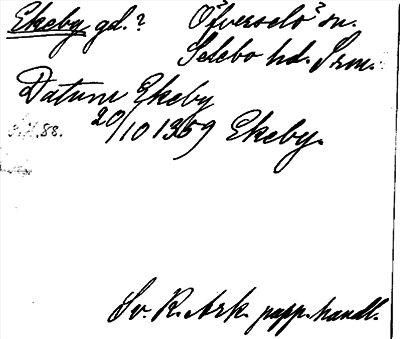 Ekeby gd.? Öfverselö sn.
Selebo hd. Srm.
Datum Ekeby
20/10 1359 Ekeby.
88.
Sv. R. Ark. papp. handl.